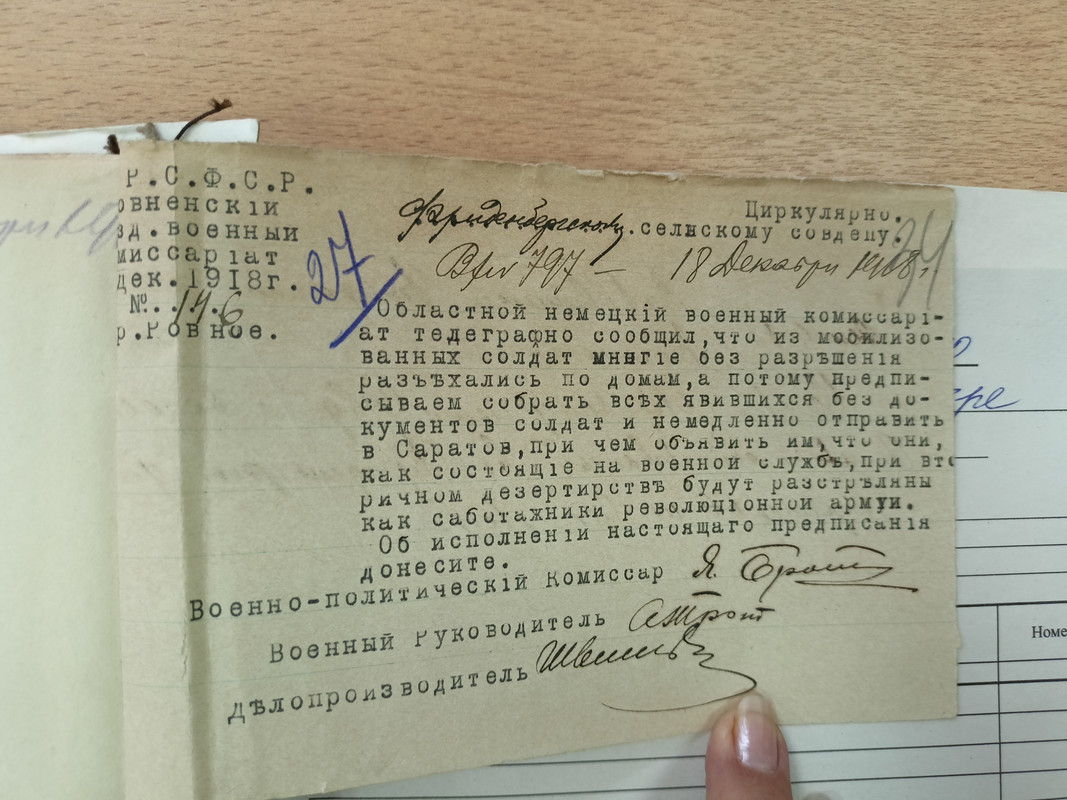 Р.С.Ф.С.Р.
овненскій
зд. военный
миссаріат
дек. 1918г.
№ 146
р.Ровное.
27
Циркулярно.
Фриденбергскому сельскому совдепу.
797 — 18 Декабря 1918 г.
Областной немецкій военный комиссарі-
ат телеграфно сообщил,что из мобилизо-
ванных солдат многіе без разрѣшенія
разъѣхались по домам,а потому предпи-
сываем собрать всѣх явившихся без до-
кументов солдат и немедленно отправить
в Саратов,при чем объявить им,что они,
как состоящіе на военной службѣ,при вто
ричном дезертирствѣ будут разстрѣляны
как саботажники революціонной армуи.
Об исполненіи настоящаго предписанія
донесите.
Военно-политическій Комиссар Я.
Военный Руководитель
Дѣлопроизводитель
Номе